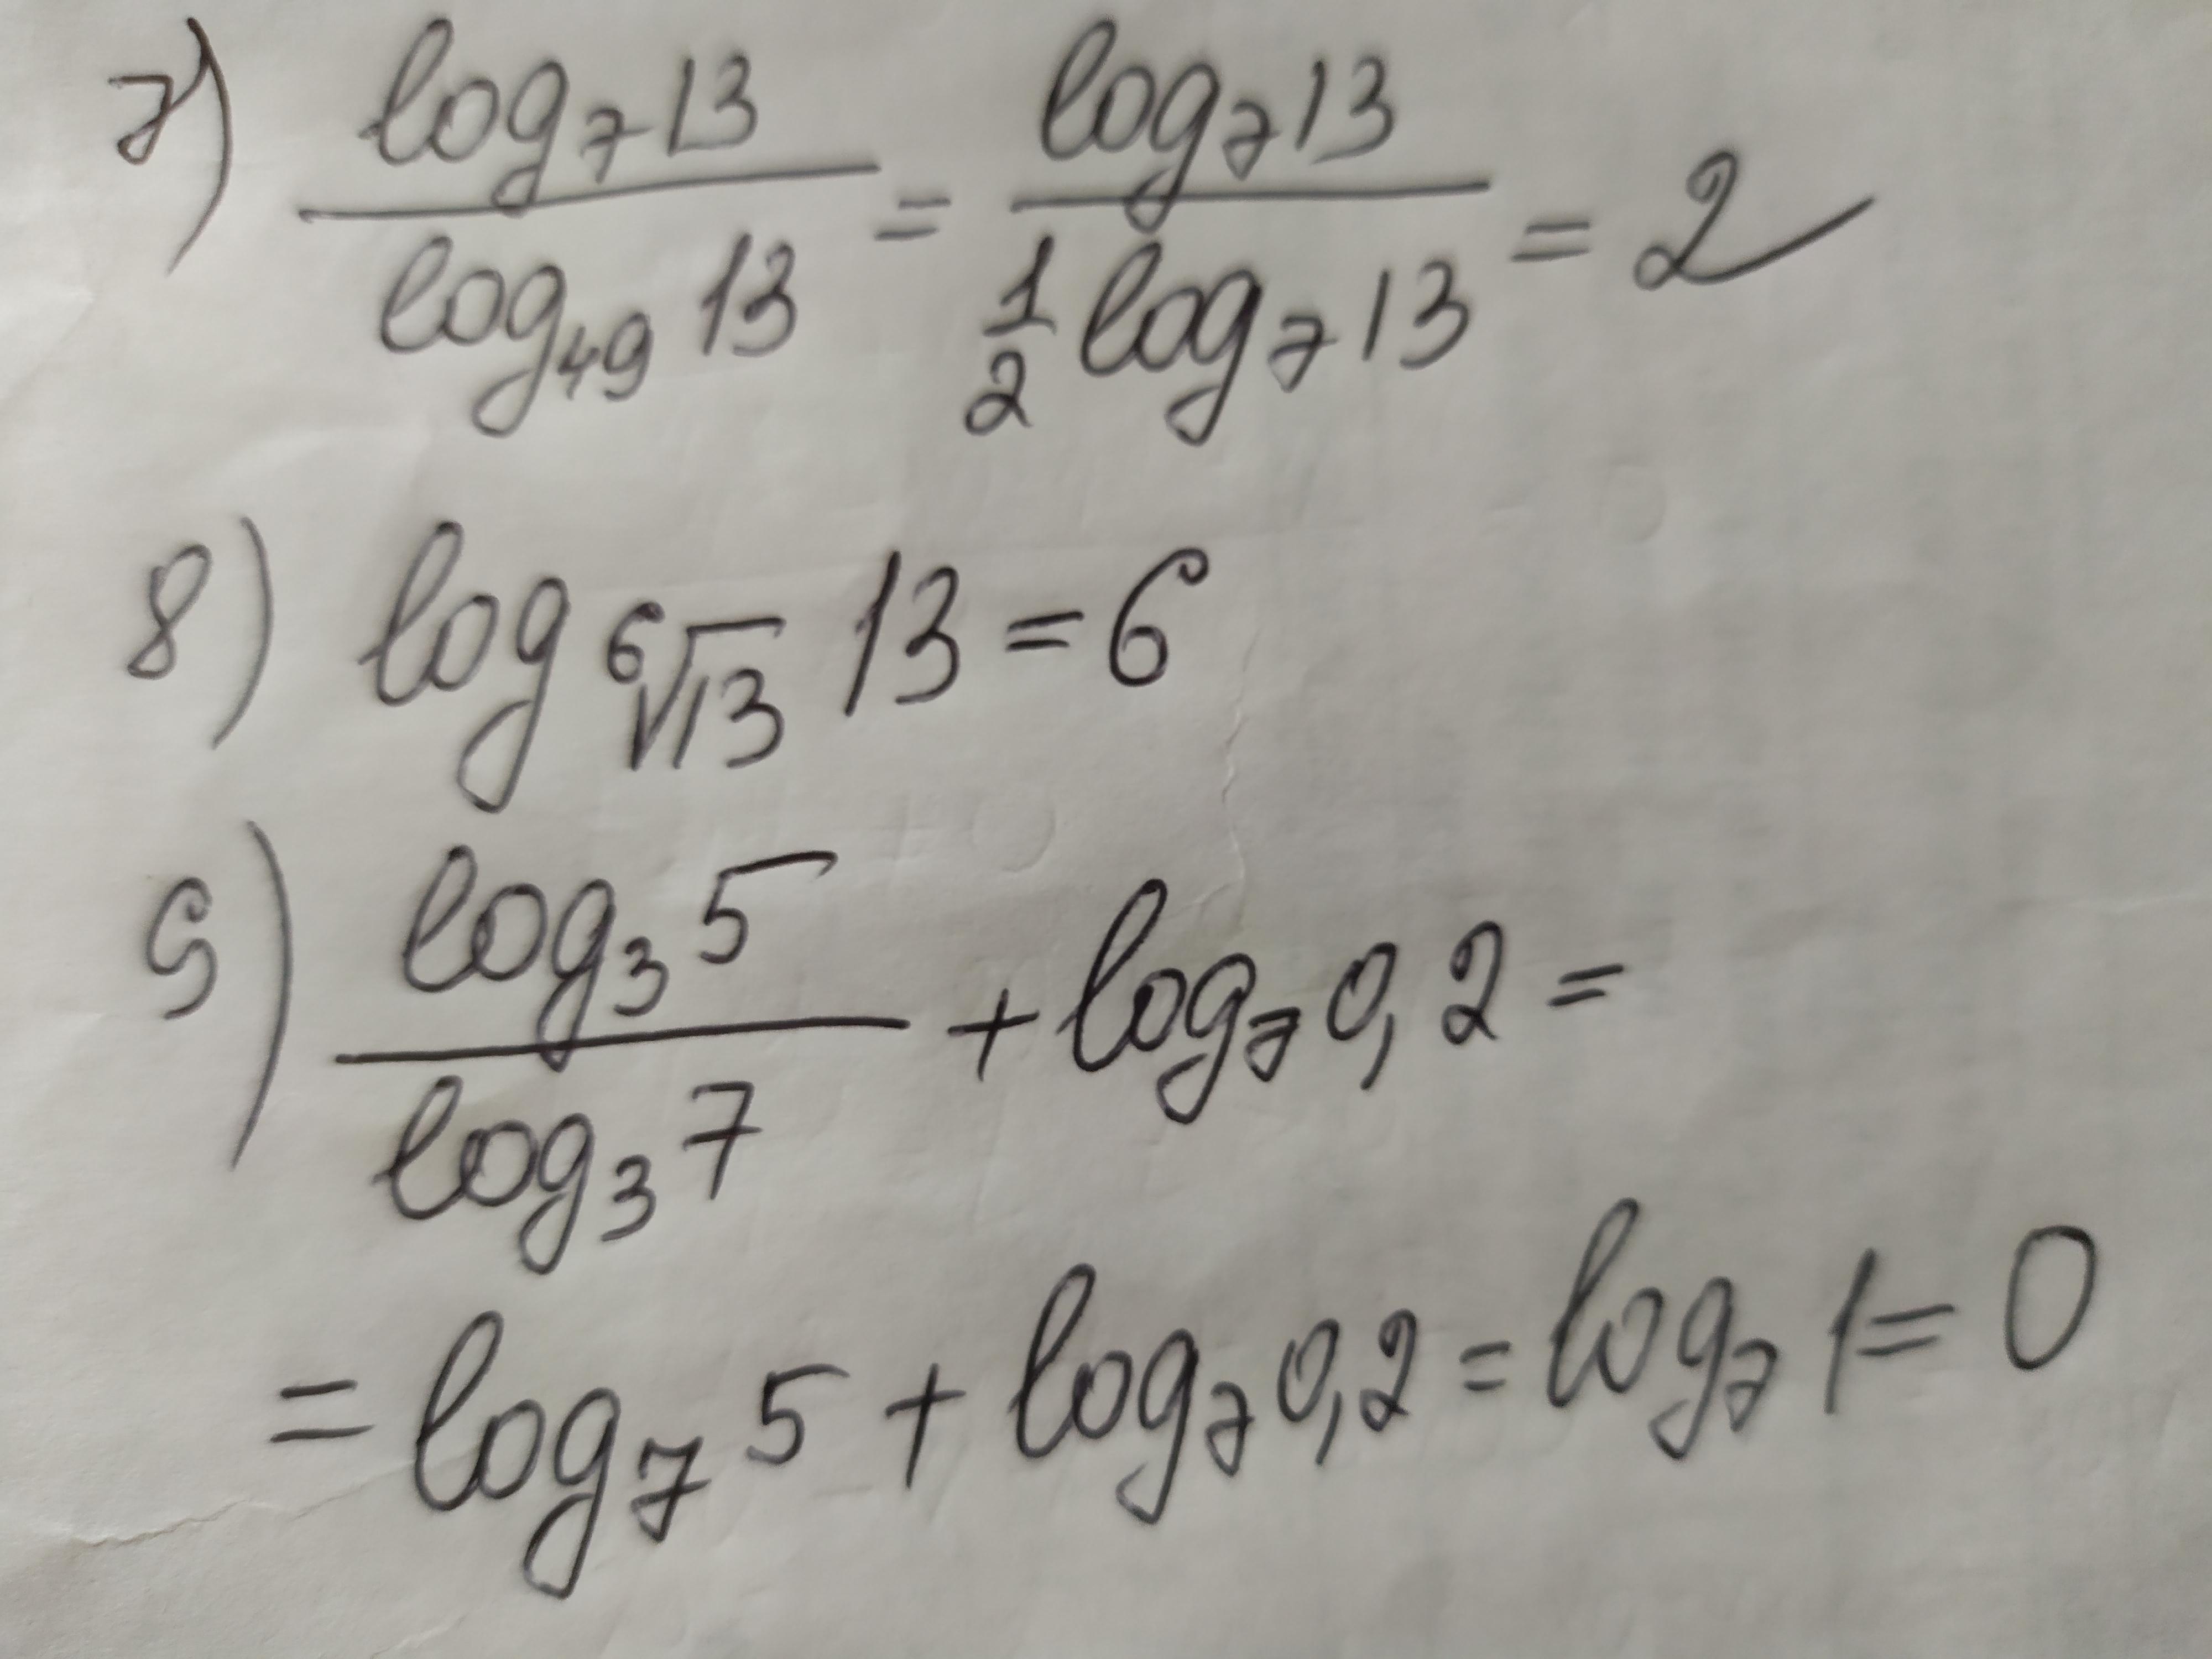 7) log₇13 / log₄₉13 = log₇13 / (1/2 log₇13) = 2
8) log ⁶√13 13 = 6
9) log₃5 / log₃7 + log₇0,2 =
= log₇5 + log₇0,2 = log₇1 = 0